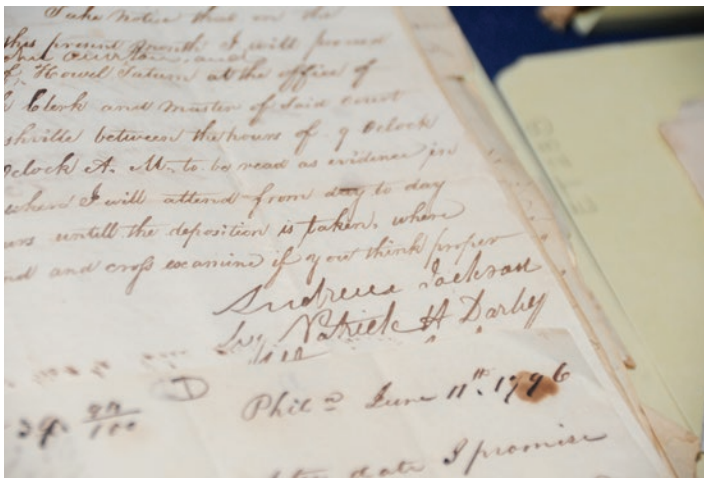 Take notice that on the
this present month I will proceed
and
of Howel Tatum at the office of
Clerk and master of said court
shville between the hours of 9 Oclock
Oclock A. M. to be read as evidence in
where I will attend from day to day
urs untill the deposition is taken, where
nd and cross examine if you think proper
Andrew Jackson
Patrick H Darby
39. 97/100
Phila June 11th. 1796
date I promise